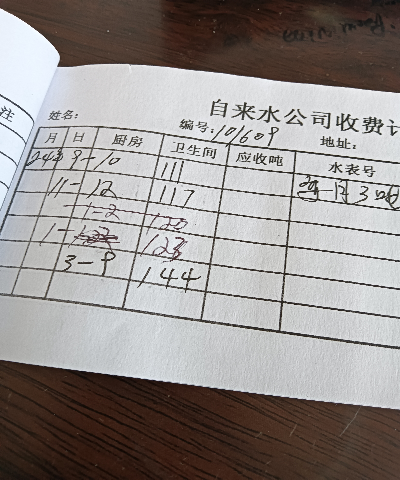 注
自来水公司收费计
姓名: 编号: 10/609 地址:
月 日 厨房 卫生间 应收吨 水表号
9-10 111 每月3吨
11-12 117
1-2 120
1- 123
3-9 144